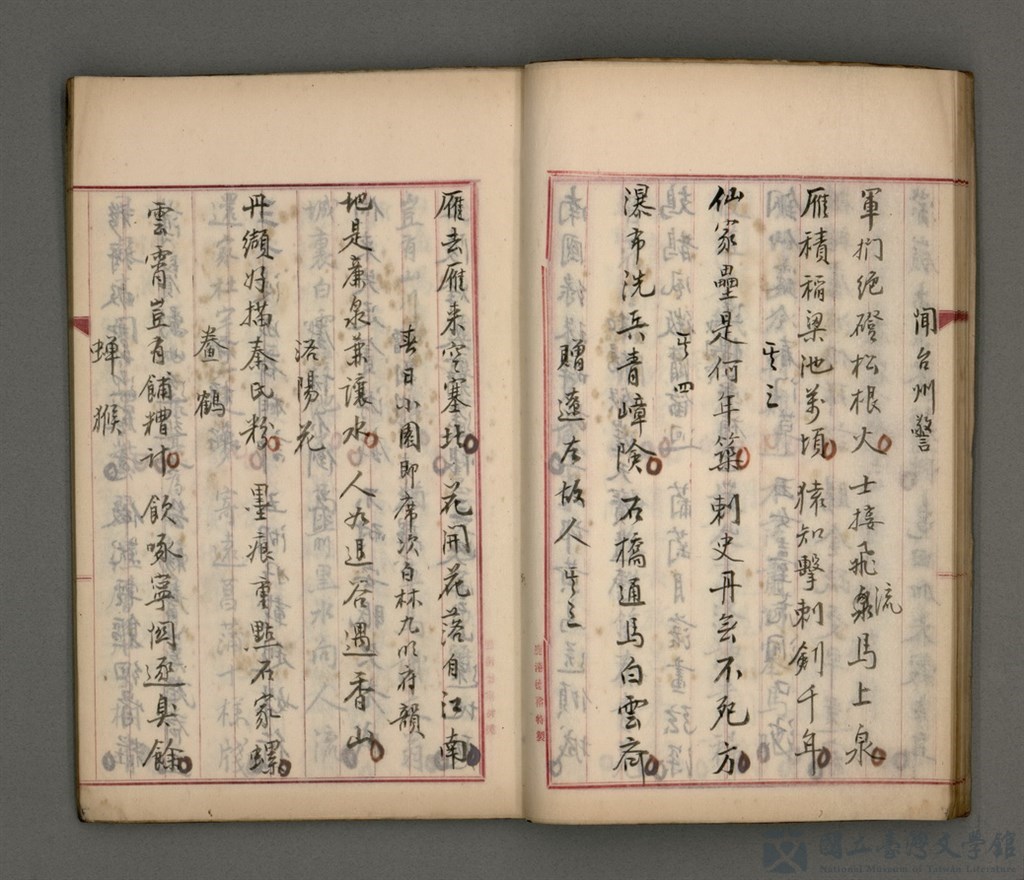 聞台州警
軍捫絕磴松根火 士接飛泉流馬上泉
雁積稻梁池萬頃 猿知擊刺劍千年
其三
仙家壘是何年築 刺史丹無不死方
其四
瀑布洗兵青嶂險 石橋通馬白雲齊
贈遼左故人 其三
雁去雁來空塞北 花開花落自江南
春日小園即席次白林九明府韻
地是廉泉兼讓水 人如退谷遇香山
洛陽花
丹纈好描秦氏粉 墨痕重點石家螺
養鶴
雲霄豈有餔糟計 飲啄寧同逐臭餘
蟬猴
國立臺灣文學館
National Museum of Taiwan Literature